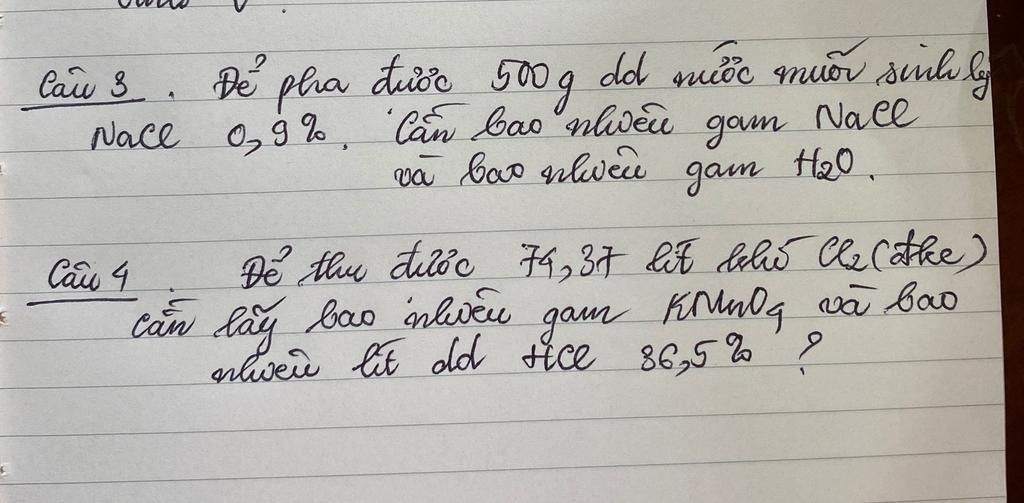 Câu 3. Để pha được 500g dd nước muối sinh lý
NaCl 0,9%. Cần bao nhiêu gam NaCl
và bao nhiêu gam H2O.
Câu 4. Để thu được 74,37 lít khí Cl2 (đkc)
cần lấy bao nhiêu gam KMnO4 và bao
nhiêu lít dd HCl 36,5% ?